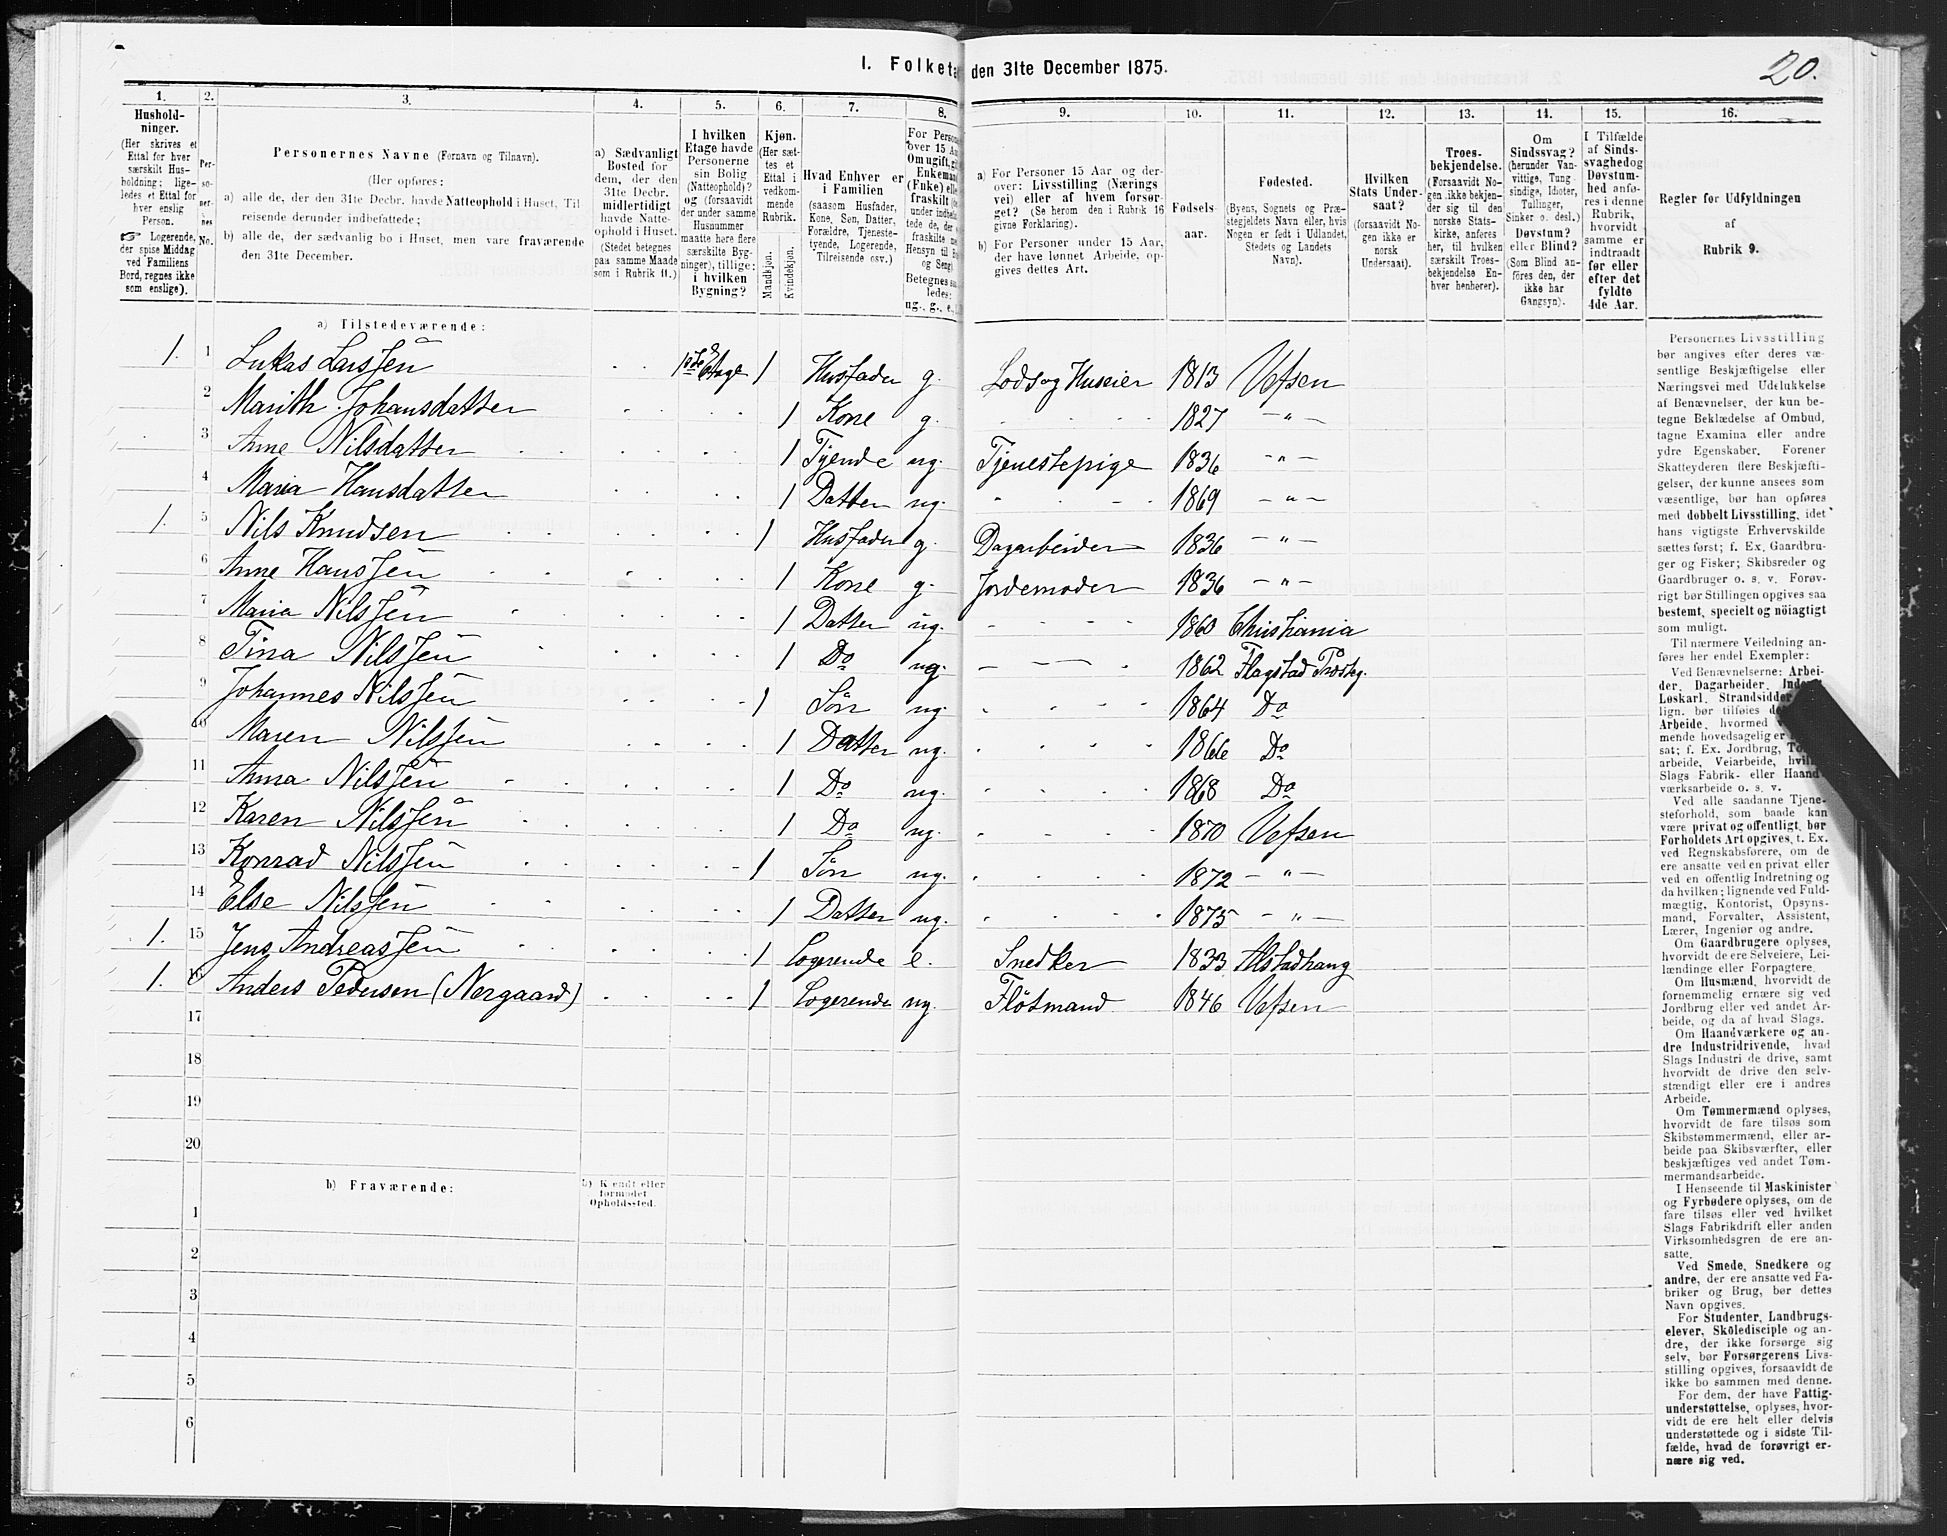 I. Folketæ den 31te December 1875.
20.
1. 2. 3. 4. 5. 6. 7. 8. 9. 10. 11. 12. 13. 14. 15. 16.
Hushold-
ninger.
(Her skrives et
Ettal for hver
særskilt Hus-
holdning; lige-
ledes et Ettal for
hver enslig
Person.
☞ Logerende,
der spise Middag
ved Familiens
Bord, regnes ikke
som enslige).
Per-
so-
ner-
nes
No.
Personernes Navne (Fornavn og Tilnavn).
(Her opføres:
a) alle de, der den 31te Decbr. havde Natteophold i Huset, Til
reisende derunder indbefattede;
b) alle de, der sædvanlig bo i Huset, men vare fraværende
den 31te December.
a) Sædvanligt
Bosted for
dem, der den
31te Decbr.
midlertidigt
havde Natte-
ophold i Huset.
(Stedet betegnes
paa samme Maade
som i Rubrik 11.)
I hvilken
Etage havde
Personerne
sin Bolig
(Natteophold)?
og (forsaavidt
der under samme
Husnummer
maatte høre flere
særskilte Byg-
ninger), tillige:
i hvilken
Bygning?
Kjøn.
(Her sæt-
tes et
Ettal i
vedkom-
mende
Rubrik.
Mandkjøn.
Kvindekjøn.
Hvad Enhver er
i Familien
(saasom Husfader,
Kone, Søn, Datter,
Forældre, Tjeneste-
tyende, Logerende,
Tilreisende osv.)
For Perso
over 15 Aa
Om ugift, gi
Enkeman
(Enke) elle
fraskilt
under
tede de,
fraskilte
Hensyn til B
og Seng)
Betegnes saa
ledes:
ug., g., e.,
a) For Personer 15 Aar og der-
over: Livsstilling (Nærings
vei) eller af hvem forsør-
get? (Se herom den i Rubrik 16
givne Forklaring).
b) For Personer under 15 Aar,
der have lønnet Arbeide, op-
gives dettes Art.
Fødsels-
aar.
Fødested.
(Byens, Sognets og Præ-
stegjeldets Navn eller, hvis
Nogen er født i Udlandet,
Stedets og Landets
Navn).
Hvilken
Stats Under-
saat?
(forsaavidt No-
gen ikke er
norsk
Undersaat).
Troes-
bekjendelse.
(Forsaavidt No-
gen ikke bekjen-
der sig til den
norske Stats-
kirke, anføres
her, til hvilken
særskilt Troes-
bekjendelse En-
hver henhører).
Om
Sindssvag?
(herunder Van-
vittige, Tung-
sindige, Idioter,
Tullinger,
Sinker o. desl.)
Døvstum?
eller Blind?
(Som Blind an-
føres den, der
ikke har
Gangsyn).
I Tilfælde
af Sinds-
svaghed og
Døvstum-
hed anfø-
res i denne
Rubrik,
hvorvidt
samme er
indtraadt
før eller
efter det
fyldte
4de Aar.
Regler for Udfyldningen
af
Rubrik 9.
a) Tilstedeværende:
1. 1 Lukas Larssen 1ste Etage 1 Husfader g. Lods og Huseier 1813 Vefsen
2 Marith Johansdatter 1 Kone g. 1827 — " —
3 Anne Nilsdatter 1 Tyende ug. Tjenestepige 1836 — " —
4 Maria Hansdatter 1 Datter ug. 1869 — " —
1. 5 Nils Knudsen 1 Husfader g. Dagarbeider 1836 — " —
6 Anne Hanssen 1 Kone g. Jordemoder 1836 — " —
7 Maria Nilssen 1 Datter ug. 1860 Christiania
8 Tina Nilssen 1 Do ug. 1862 Flagstad Prøstg.
9 Johannes Nilssen 1 Sön ug. 1864 Do
10 Maren Nilssen 1 Datter ug. 1866 Do
11 Anna Nilssen 1 Do ug. 1868 Do
12 Karen Nilssen 1 Do ug. 1870 Vefsen
13 Konrad Nilssen 1 Sön ug. 1872 — " —
14 Else Nilssen 1 Datter ug. 1875 — " —
1. 15 Jens Andreassen 1 Logerende e. Snedker 1833 Alstadhaug
1. 16 Anders Pedersen (Nergaard) 1 Logerende ug. Flötmand 1846 Vefsen
17
18
19
20
b) Fraværende:
b) Kjendt eller
formodet
Opholdssted.
1
2
3
4
5
6
Personernes Livsstilling
bør angives efter deres væ-
sentlige Beskjæftigelse eller
Næringsvei med Udelukkelse
af Benævnelser, der kun be-
tegne Beklædelse af Ombud,
tagne Examina eller andre
ydre Egenskaber. Forener
Skatteyderen flere Beskjæfti-
gelser, der kunne ansees som
væsentlige, bør han opføres
med dobbelt Livsstilling, idet
hans vigtigste Erhvervskilde
sættes først; f. Ex. Gaardbru-
ger og Fisker; Skibsreder og
Gaardbruger o. s. v. Forøv-
rigt bør Stillingen opgives saa
bestemt, specielt og nöiagtigt
som muligt.
Til nærmere Veiledning an-
føres her endel Exempler:
Ved Benævnelserne: Arbei-
der, Dagarbeider, Inderst,
Løskarl, Strandsidder
lign. bør tilføies de
Arbeide, hvormed
mende hovedsagelig er
sat; f. Ex. Jordbrug, To
arbeide, Veiarbeide, hvil
Slags Fabrik- eller Haand-
værksarbeide o. s. v.
Ved alle saadanne Tjene-
steforhold, som baade kan
være privat og offentligt, bør
Forholdets Art opgives, t. Ex.
ved Regnskabsførere, om de
ere ansatte ved en privat eller
ved en offentlig Indretning og
da hvilken; lignende ved Fuld-
mægtig, Kontorist, Opsyns-
mand, Forvalter, Assistent,
Lærer, Ingeniør og andre.
Om Gaardbrugere oplyses,
hvorvidt de ere Selveiere, Lei-
lændinge eller Forpagtere.
Om Husmænd, hvorvidt de
fornemmelig ernære sig ved
Jordbrug eller ved andet Ar-
beide, og da af hvad Slags.
Om Haandværkere og an-
dre Industridrivende, hvad
Slags Industri de drive, samt
hvorvidt de drive den selv-
stændigt eller ere i andres
Arbeide.
Om Tømmermænd oplyses,
hvorvidt de fare tilsøs som
Skibstømmermænd, eller ar-
beide paa Skibsværfter, eller
beskjæftiges ved andet Tøm-
mermandsarbeide.
I Henseende til Maskinister
og Fyrbødere oplyses, om de
fare tilsøs eller ved hvilket
Slags Fabrikdrift eller anden
Virksomhedsgren de ere an-
satte.
Ved Smede, Snedkere og
andre, der ere ansatte ved Fa-
briker og Brug, bør dettes
Navn opgives.
For Studenter, Landbrugs-
elever, Skoledisciple og an-
dre, der ikke forsørge sig
selv, bør Forsørgerens Livs-
stilling opgives, forsaavidt de
ikke bo sammen med denne.
For dem, der have Fattig-
understøttelse, oplyses, hvor-
vidt de ere helt eller delvis
understøttede og i sidste Til-
fælde, hvad de forøvrigt er-
nære sig ved.